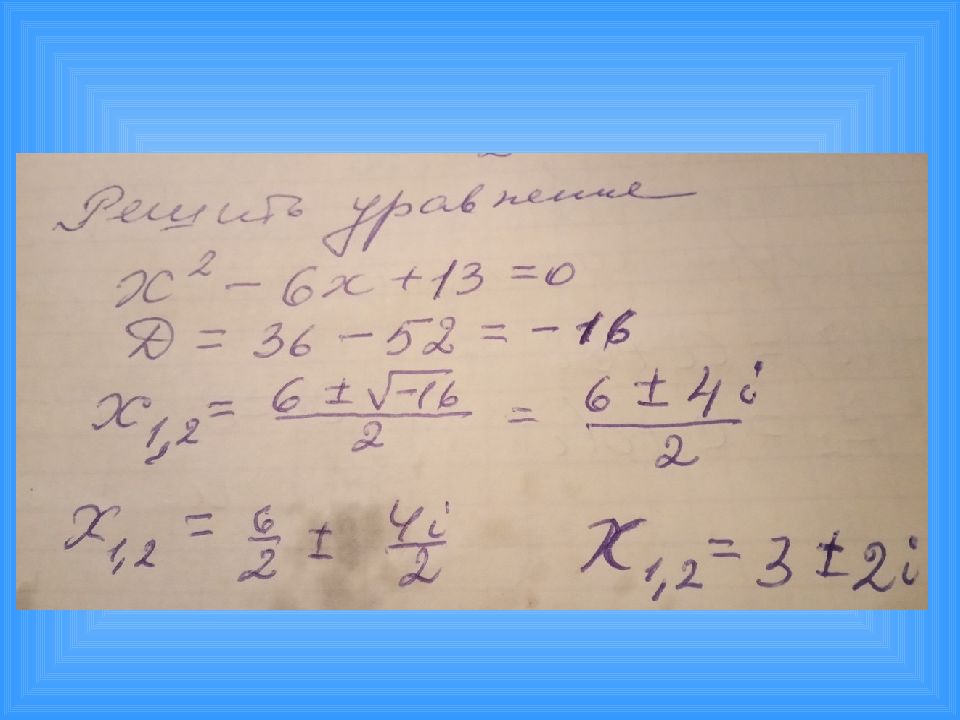 Решить уравнение
x² - 6x + 13 = 0
D = 36 - 52 = -16
x₁,₂ = (6 ± √-16)/2 = (6 ± 4i)/2
x₁,₂ = 6/2 ± 4i/2 x₁,₂ = 3 ± 2i